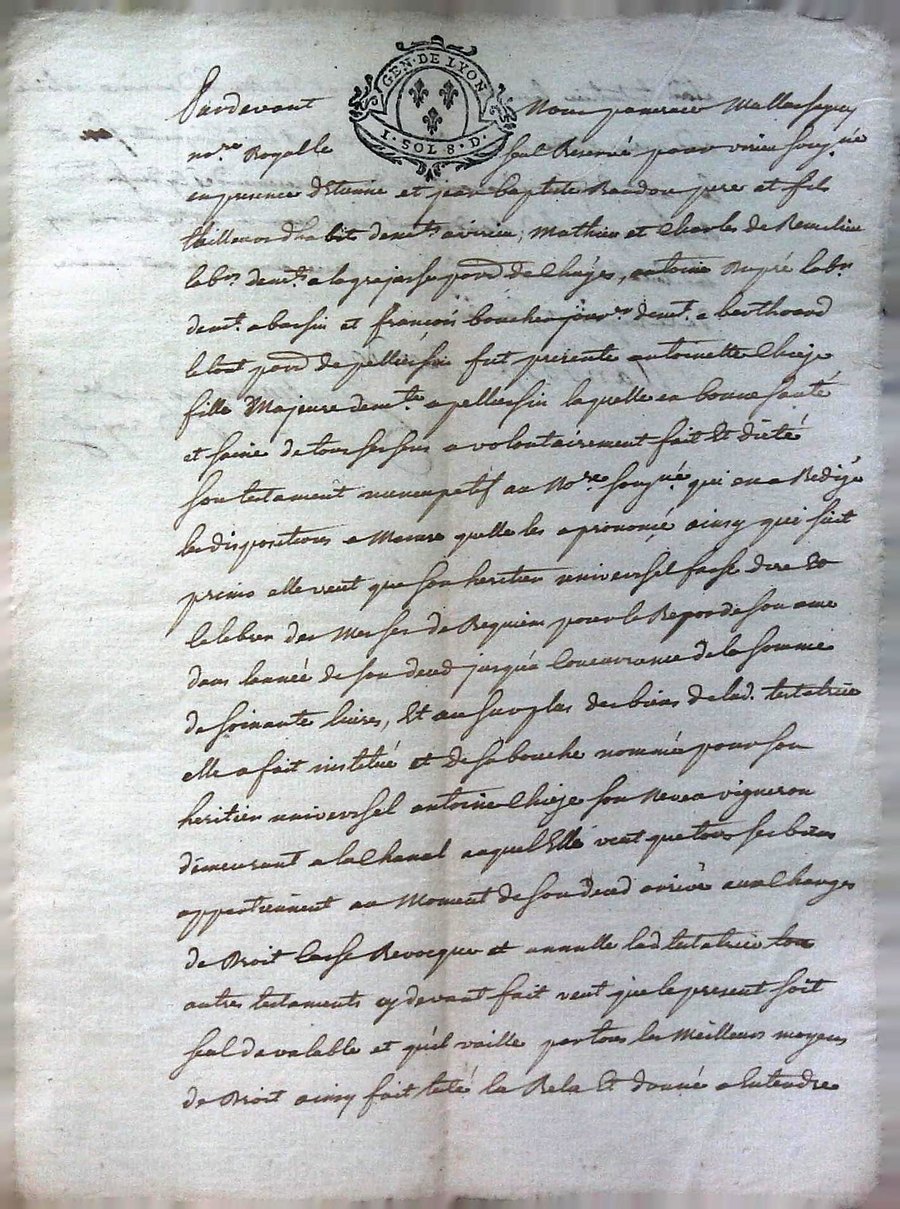 GEN · DE LYON
1 · SOL 8 · D ·
Pardevant Nous
no.re Royalle seul Reservé pour virieu soug.né
en presence d'Etienne et jean baptiste Baudon pere et fils
tailleurs d'habits dem.ts a virieu, Mathieu et Charles de
lab.rs dem.ts a la par.d de Chuges, antoine Dupré lab.r
dem.t a bassin et francois boucher dem.t a
le tout par.d de pellussin fut presente antoinette Chieze
fille Majeure dem.te a pellussin laquelle en bonne santé
et saine de tous ses sens a volontairement fait Et dicté
son testament nuncupatif au No.re soug.né qui en a Redigé
les dispositions a Mesure quelle les a prononcé ainsy qui suit
primo elle veut que son heritier universel fasse dire Et
celebrer des Messes de Requiem pour le Repos de son ame
dans lannée de son deced jusqu'a concurrance de la somme
de soixante livres, Et au surplus des biens de lad. testatrice
elle a fait institué et de sa bouche nommé pour son
heritier universel antoine Chieze son Neveu vigneron
demeurant a la Chanal auquel Elle veut que tous ses biens
appartiennent au Moment de son deced arrivé aux Charges
de Droit Casse Revocque et annulle lad testatrice tou
autres testaments cy devant fait veut que le present soit
seul de valable et qu'il vaille par tous les Meilleurs moyens
de Droit ainsy fait testé lu Relu Et donné a Entendre